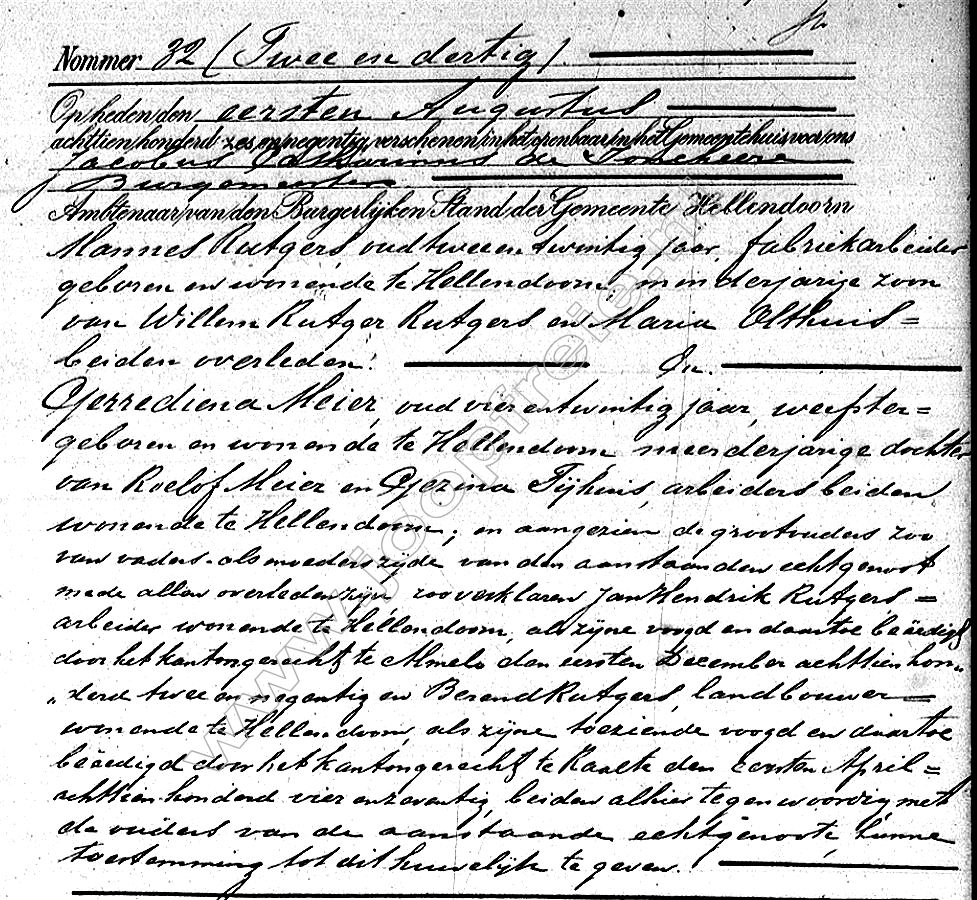 Nommer 32 (Twee en dertig)
Op heden den eersten Augustus
achttien honderd zes en negentig, verschenen in het openbaar, in het Gemeentehuis, voor ons
Jacobus Catharinus de
Burgemeester
Ambtenaar van den Burgerlijken Stand der Gemeente Hellendoorn
Mannes Rutgers, oud twee en twintig jaar, fabriekarbeider
geboren en wonende te Hellendoorn, minderjarige zoon
van Willem Rutger Rutgers en Maria Olthuis =
beiden overleden. En.
Gerrediena Meier, oud vier en twintig jaar, weefster =
geboren en wonende te Hellendoorn meerderjarige dochter
van Roelof Meier en Gezina Tijhuis, arbeiders beiden
wonende te Hellendoorn; en aangezien de grootouders zoo
van vaders- als moeders zijde van den aanstaanden echtgenoot
mede allen overleden zijn zoo verklaren Jan Hendrik Rutgers =
arbeider wonende te Hellendoorn, als zijne voogd en daartoe beëedigd
door het kantongerecht te Almelo den eersten December achttien hon„
„derd twee en negentig en Berend Rutgers, landbouwer =
wonende te Hellendoorn, als zijne toeziende voogd en daartoe
beëedigd door het kantongerecht te Raalte den eersten April =
achttien honderd vier en zeventig, beiden alhier tegenwoordig met
de ouders van de aanstaande echtgenoote, hunne
toestemming tot dit huwelijk te geven.
www.joopfreie.nl